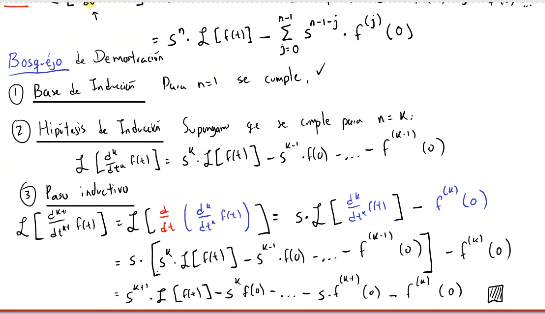 = s^n · ℒ[f(t)] - ∑_{j=0}^{n-1} s^{n-1-j} · f^{(j)}(0)
Bosquéjo de Demostración
① Base de Inducción Para n=1 se cumple, ✓
② Hipótesis de Inducción Supongamos que se cumple para n = k:
ℒ[d^k/dt^k f(t)] = s^k · ℒ[f(t)] - s^{k-1} · f(0) - ... - f^{(k-1)}(0)
③ Paso inductivo
ℒ[d^{k+1}/dt^{k+1} f(t)] = ℒ[d/dt (d^k/dt^k f(t))] = s · ℒ[d^k/dt^k f(t)] - f^{(k)}(0)
= s · [s^k · ℒ[f(t)] - s^{k-1} · f(0) - ... - f^{(k-1)}(0)] - f^{(k)}(0)
= s^{k+1} · ℒ[f(t)] - s^k f(0) - ... - s · f^{(k+1)}(0) - f^{(k)}(0)